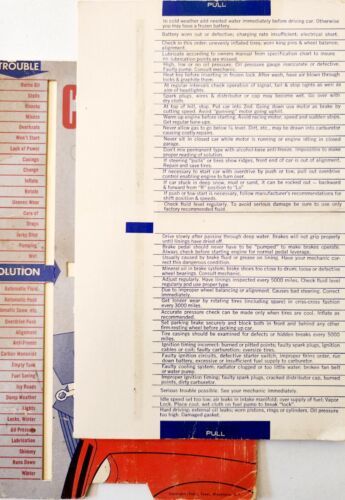 PULL
In cold weather add needed water immediately before driving car. Otherwise
you may have a frozen battery.
Battery worn out or defective; charging rate insufficient; electrical short.
Check in this order: unevenly inflated tires; worn king pins & wheel balance;
alignment.
Lubricate according to owners manual from specification chart to insure
no lubrication points are missed.
High, low or no oil pressure. Oil pressure gauge inaccurate or defective.
Faulty pump. Consult mechanic.
Heat key before inserting in frozen lock. After wash, have air blown through
locks & graphite them.
At regular intervals check operation of signal, tail & stop lights as well as
aim of headlights.
Spark plugs, wires & distributor cap may become wet, so cover with
dry cloth.
At top of hill, stop. Put car into 2nd. Going down use motor as brake by
cutting speed. Avoid "gunning" motor going uphill.
Warm up engine before starting. Avoid racing motor, speed and sudden stops.
Get regular tune ups.
Never allow gas to go below ¼ level. Dirt, etc., may be drawn into carburetor
causing costly repairs.
Never sit in closed car while motor is running or engine idling in closed
garage.
Don't mix permanent type with alcohol-base anti-freeze. Impossible to make
proper reading of solution.
If steering "pulls" or tires show ridges, front end of car is out of alignment.
Repair and save tires.
If necessary to start car with overdrive by push or tow; pull out overdrive
control enabling engine to turn over.
If car stuck in deep snow, mud or sand, it can be rocked out — backward
& forward from "R" position to "L".
If push or tow start is necessary, follow manufacturer's recommendations
for shift position & speeds.
Check fluid level regularly. To avoid serious damage be sure to use only
factory recommended fluid.
Drive slowly after passing through deep water. Brakes will not grip properly
until linings have dried off.
Brake pedal should never have to be "pumped" to make brakes operate.
Always consult before tightening engine for normal pedal leverage.
Usually caused by brake fluid or grease on lining. Have your mechanic cor-
rect this dangerous condition.
Mineral oil in brake system; brake shoes too close to drum; loose or defective
wheel bearings. Consult mechanic.
Adjust regularly. Have linings inspected every 5000 miles. Check fluid level
regularly and use proper type.
Due to improper wheel balancing or alignment. Causes bad steering. Correct
immediately.
Get longer wear by rotating tires (including spare) in criss-cross fashion
every 3000 miles.
Accurate pressure check can be made only when tires are cool. Inflate as
recommended.
Set parking brake securely and block both in front and behind any other
firm-resting wheel before jacking up car.
Tire casings should be examined for defects or hidden breaks every 5000
miles.
Ignition timing incorrect; burned or pitted points; faulty spark plugs, ignition
cables or coil; faulty carburetion; overage tires.
Faulty ignition circuits, defective starter switch, improper firing order, run
down battery, excessive or insufficient fuel supply to carburetor.
Faulty cooling system; radiator clogged or too little water; broken fan belt
or water pump.
Improper ignition timing; faulty spark plugs, cracked distributor cap, burned
points, dirty carburetor.
Serious trouble possible. See your mechanic immediately.
Idle speed set too low; air leaks in intake manifold; over supply of fuel; Vapor
Lock. Place cool, wet cloth on fuel pump to break "lock".
Hard driving; external oil leaks; worn pistons, rings or cylinders. Oil pressure
too high. Damaged gasket.
PULL
TROUBLE
Stalls
Knocks
Misses
Overheats
Won't Start
Lack of Power
Casings
Change
Inflate
Rotate
Uneven Wear
Care of
Drags
Pumping
Wet
SOLUTION
Automatic Fluid
Overdrive
Alignment
Anti-Freeze
Carbon Monoxide
Empty Tank
Fuel Saving
Icy Roads
Damp Weather
Lights
Locks, Winter
Oil Pressure
Lubrication
Shimmy
Runs Down
Winter